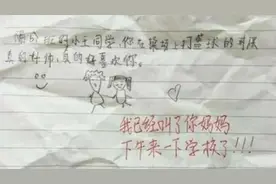 的小王同学,你在操场上打篮球的样子
真的好帅,真的好喜欢你。
我已经叫了你妈妈
下午来一下学校了!!!